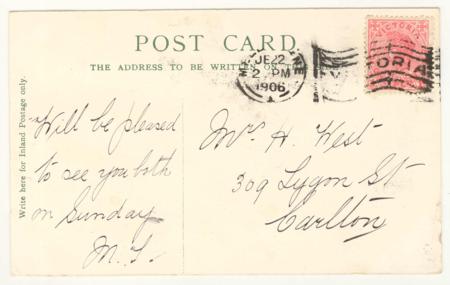 POST CARD
THE ADDRESS TO BE WRITTEN ON THIS SIDE
VICTORIA
JE 22
2 PM
1906
Write here for Inland Postage only.
Will be pleased
to see you both
on Sunday
M. S.
Mrs H. West
309 Lygon St
Carlton